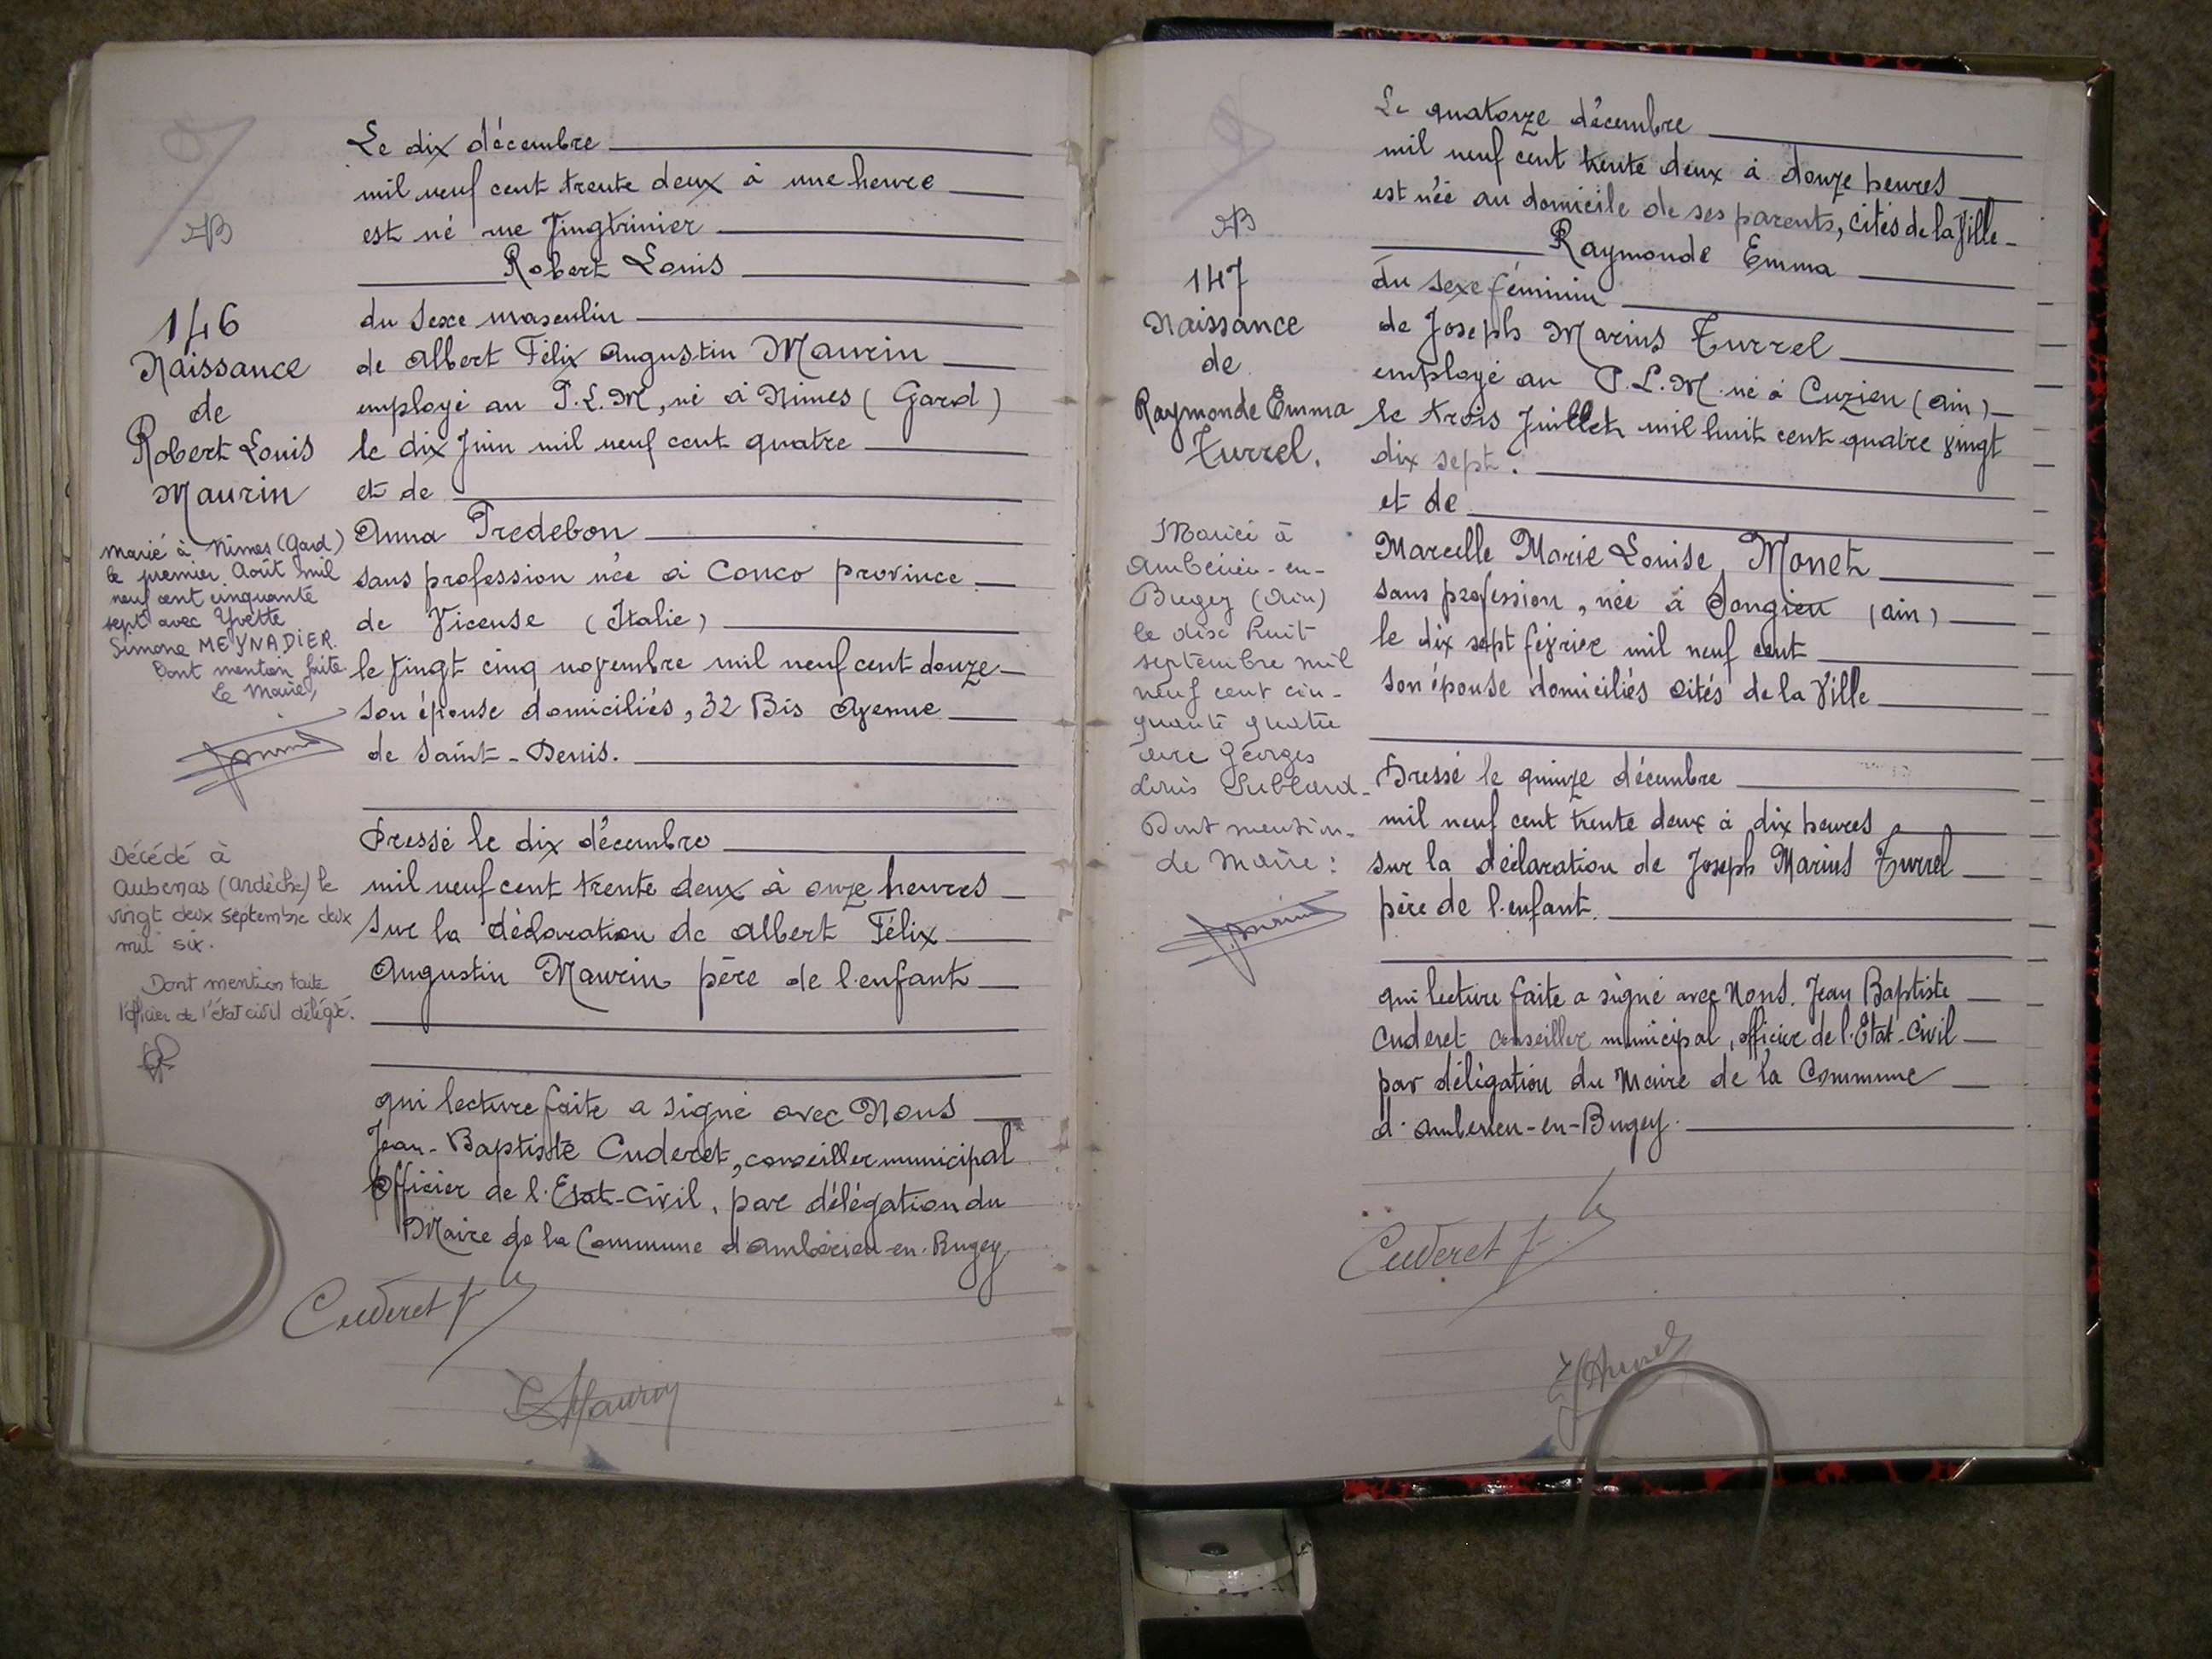 Le dix décembre
mil neuf cent trente deux à une heure
est né rue Vingtrinier
Robert Louis
du sexe masculin
de Albert Félix Augustin Maurin
employé au P.L.M, né à Nimes (Gard)
le dix Juin mil neuf cent quatre
et de
Anna Predebon
sans profession née à Conco province
de Vicense (Italie)
le vingt cinq novembre mil neuf cent douze
son épouse domiciliés, 32 Bis Avenue
de Saint-Denis.
Dressé le dix décembre
mil neuf cent trente deux à onze heures
sur la déclaration de Albert Félix
Augustin Maurin père de l'enfant
qui lecture faite a signé avec Nous
Jean-Baptiste Cuderet, conseiller municipal
Officier de l'Etat-Civil, par délégation du
Maire de la Commune d'Ambérieu-en-Bugey
Cuderet J
Maurin
146
Naissance
de
Robert Louis
Maurin
Marié à Nîmes (Gard)
le premier Août mil
neuf cent cinquante
sept avec Yvette
Simone MEYNADIER.
Dont mention faite.
Le Maire,
Décédé à
Aubenas (Ardèche) le
vingt deux septembre deux
mil six.
Dont mention faite
l'officier de l'état civil délégué.
Le quatorze décembre
mil neuf cent trente deux à douze heures
est née au domicile de ses parents, cités de la Ville
Raymonde Emma
du sexe féminin
de Joseph Marius Turrel
employé au P.L.M. né à Cuzieu (Ain)
le trois Juillet mil huit cent quatre vingt
dix sept.
et de
Marcelle Marie Louise Monet
sans profession, née à Songieu (Ain)
le dix sept février mil neuf cent
son épouse domiciliés cités de la Ville
Dressé le quinze décembre
mil neuf cent trente deux à dix heures
sur la déclaration de Joseph Marius Turrel
père de l'enfant.
qui lecture faite a signé avec Nous. Jean Baptiste
Cuderet conseiller municipal, officier de l'Etat-Civil
par délégation du Maire de la Commune
d'Ambérieu-en-Bugey.
Cuderet J
147
Naissance
de
Raymonde Emma
Turrel.
Mariée à
Ambérieu-en-
Bugey (Ain)
le dix huit
septembre mil
neuf cent cin-
quante quatre
avec Georges
Louis
Dont mention.
Le Maire: